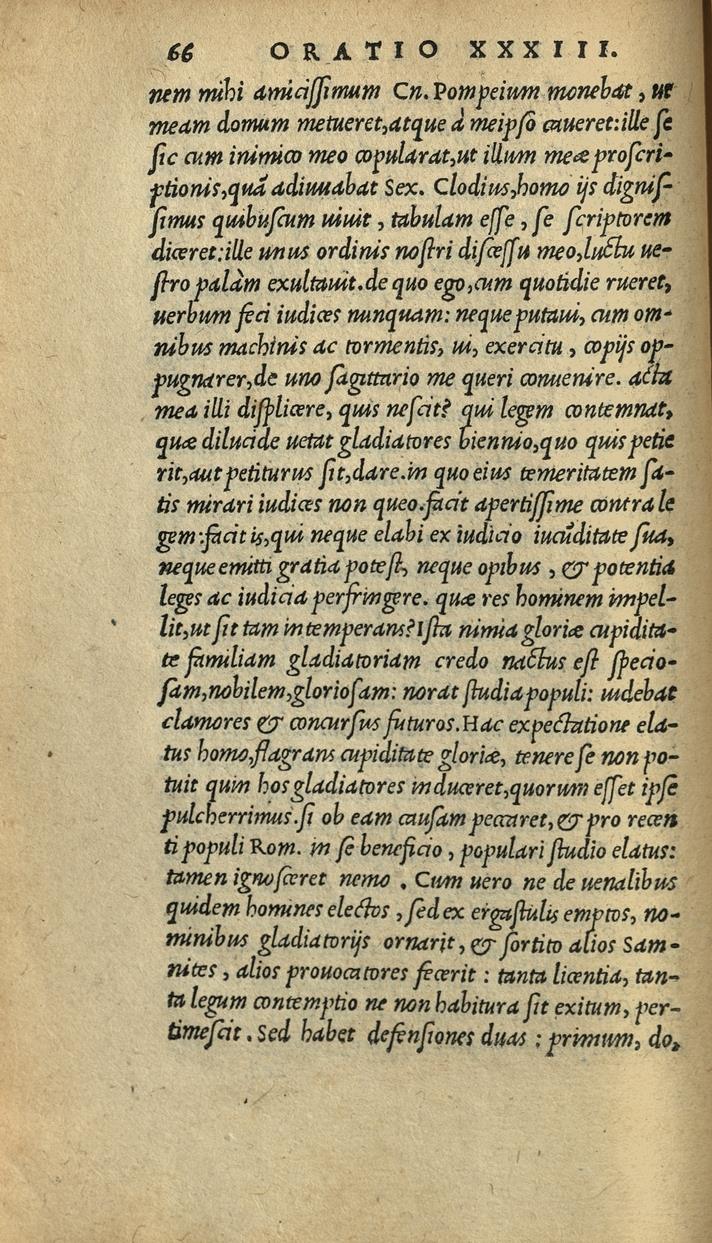 66 ORATIO XXXIII.
nem mihi amicissimum Cn. Pompeium monebat, ut
meam domum metueret, atque à meipso caueret: ille se
sic cum inimico meo copularat, ut illum meæ proscri-
ptionis, quã adiuuabat Sex. Clodius, homo ijs dignis-
simus quibuscum uiuit, tabulam esse, se scriptorem
diceret: ille unus ordinis nostri discessu meo, luctu ue-
stro palàm exultauit. de quo ego, cum quotidie rueret,
uerbum feci iudices nunquam: neque putaui, cum om-
nibus machinis ac tormentis, ui, exercitu, copijs op-
pugnarer, de uno sagittario me queri conuenire. acta
mea illi displicere, quis nescit? qui legem contemnat,
quæ dilucide uetat gladiatores biennio, quo quis petie
rit, aut petiturus sit, dare. in quo eius temeritatem sa-
tis mirari iudices non queo. facit apertissime contra le
gem: facit is, qui neque elabi ex iudicio iucũditate sua,
neque emitti gratia potest, neque opibus, & potentia
leges ac iudicia perfringere. quæ res hominem impel-
lit, ut sit tam intemperans? Ista nimia gloriæ cupidita-
te familiam gladiatoriam credo nactus est specio-
sam, nobilem, gloriosam: norat studia populi: uidebat
clamores & concursus futuros. Hac expectatione ela-
tus homo, flagrans cupiditate gloriæ, tenere se non po-
tuit quin hos gladiatores induceret, quorum esset ipse
pulcherrimus. si ob eam causam peccaret, & pro recen
ti populi Rom. in se beneficio, populari studio elatus:
tamen ignosceret nemo. Cum uero ne de uenalibus
quidem homines electos, sed ex ergastulis emptos, no-
minibus gladiatorijs ornarit, & sortito alios Sam-
nites, alios prouocatores fecerit: tanta licentia, tan-
ta legum contemptio ne non habitura sit exitum, per-
timescit. Sed habet defensiones duas: primum, do,